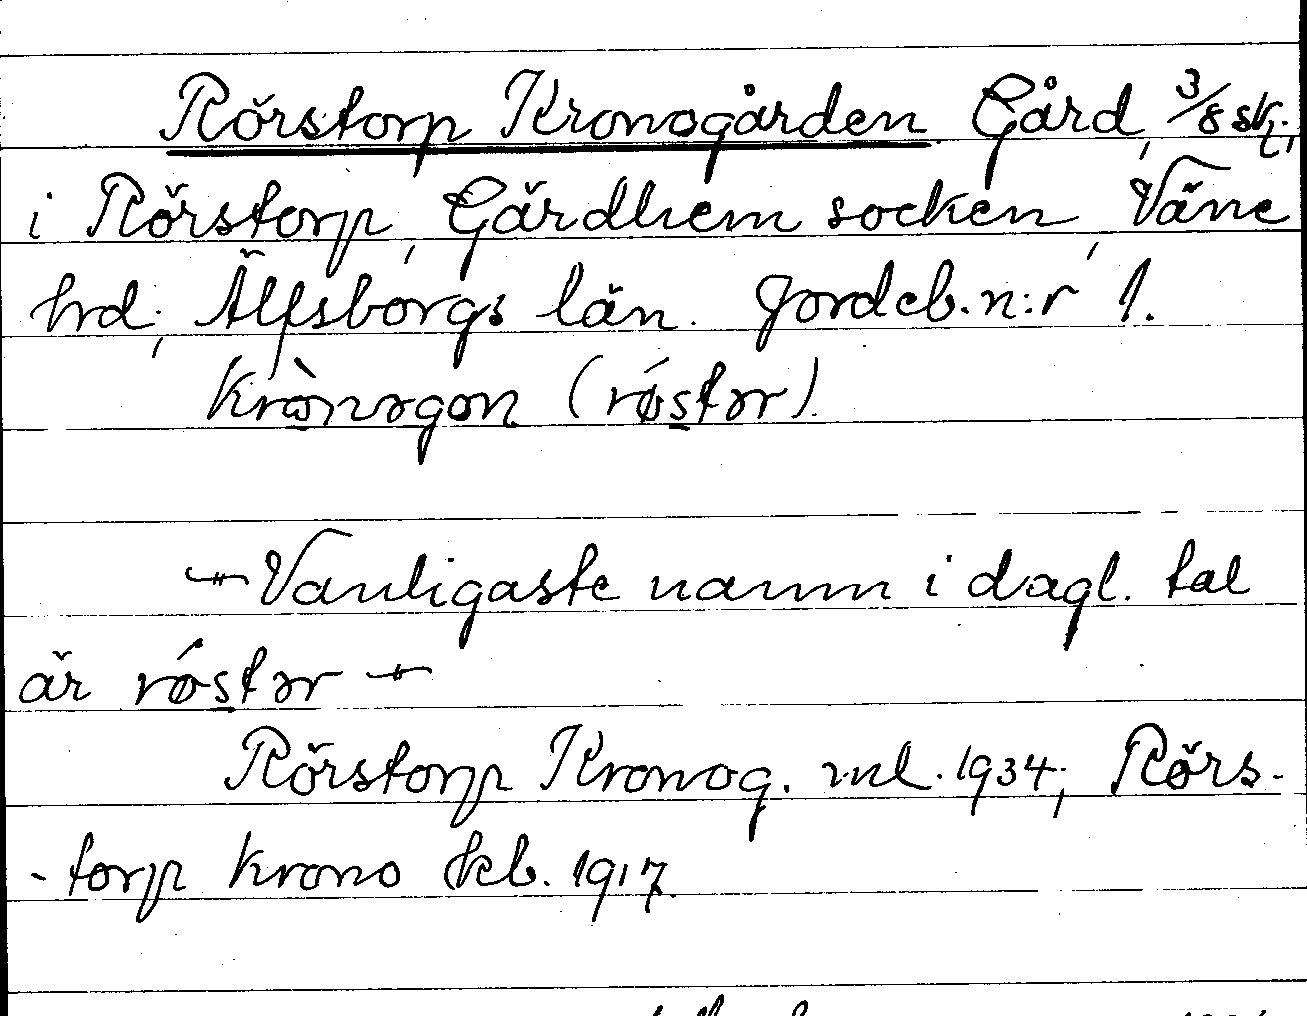 Rörstorp Kronogården Gård, 3/8 sk.,
i Rörstorp, Gärdhem socken, Väne
hrd., Älfsborgs län. Jordeb.n:r 1.
krònəgon (røstər).
Vanligaste namn i dagl. tal
är røstər
Rörstorp Kronog. ml. 1934; Rörs-
-torp Krono Jkb. 1917.